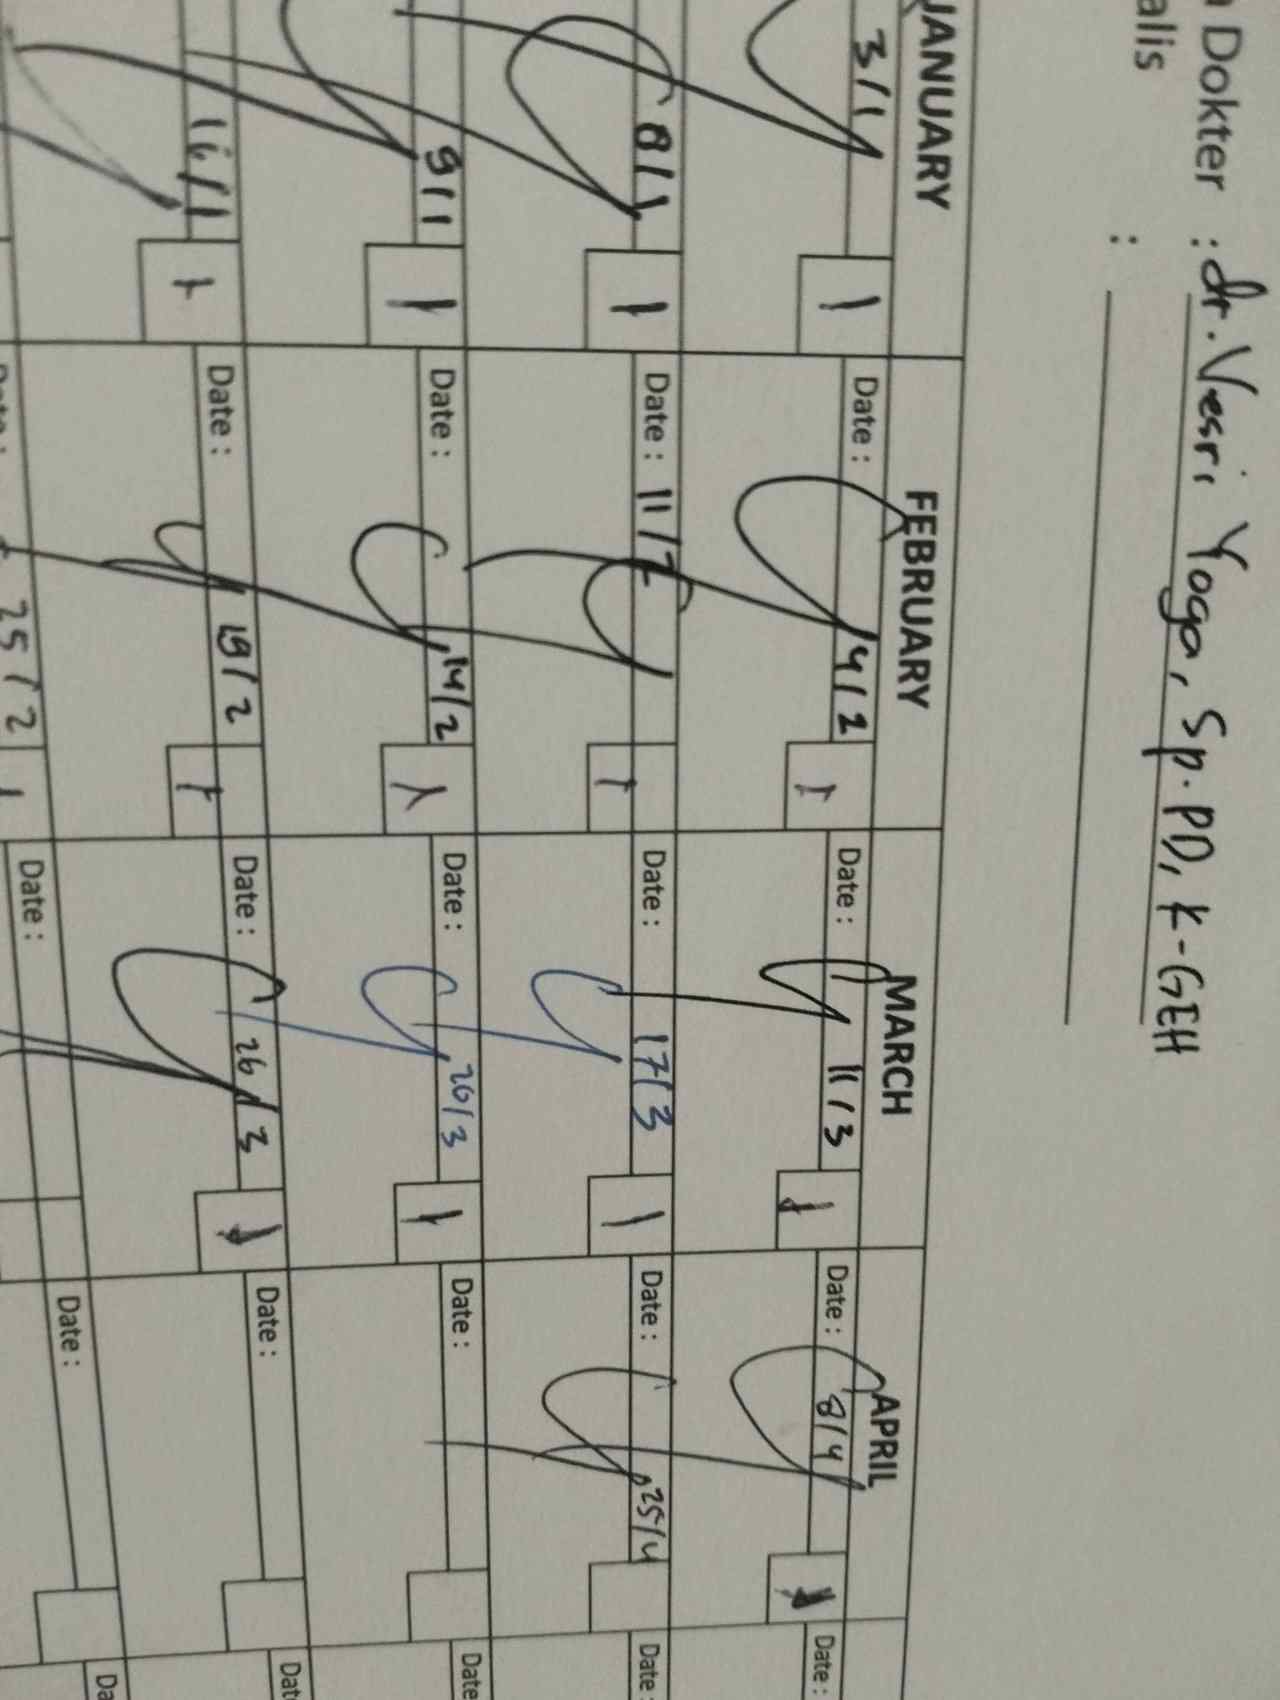 Dokter : dr. Vesri Yoga, Sp.PD, K-GEH
alis :
JANUARY FEBRUARY MARCH APRIL
3/1 Date : 4/2 Date : 11/3 Date : 8/4 Date :
1 1 1 1
8/1 Date : 11/2 Date : 17/3 Date : 25/4 Date :
1 1 1
9/1 Date : 14/2 Date : 20/3 Date : Date
1 1 1
16/1 Date : 19/2 Date : 26/3 Date : Dat
1 1 1
25/2 Date : Date : Da
1